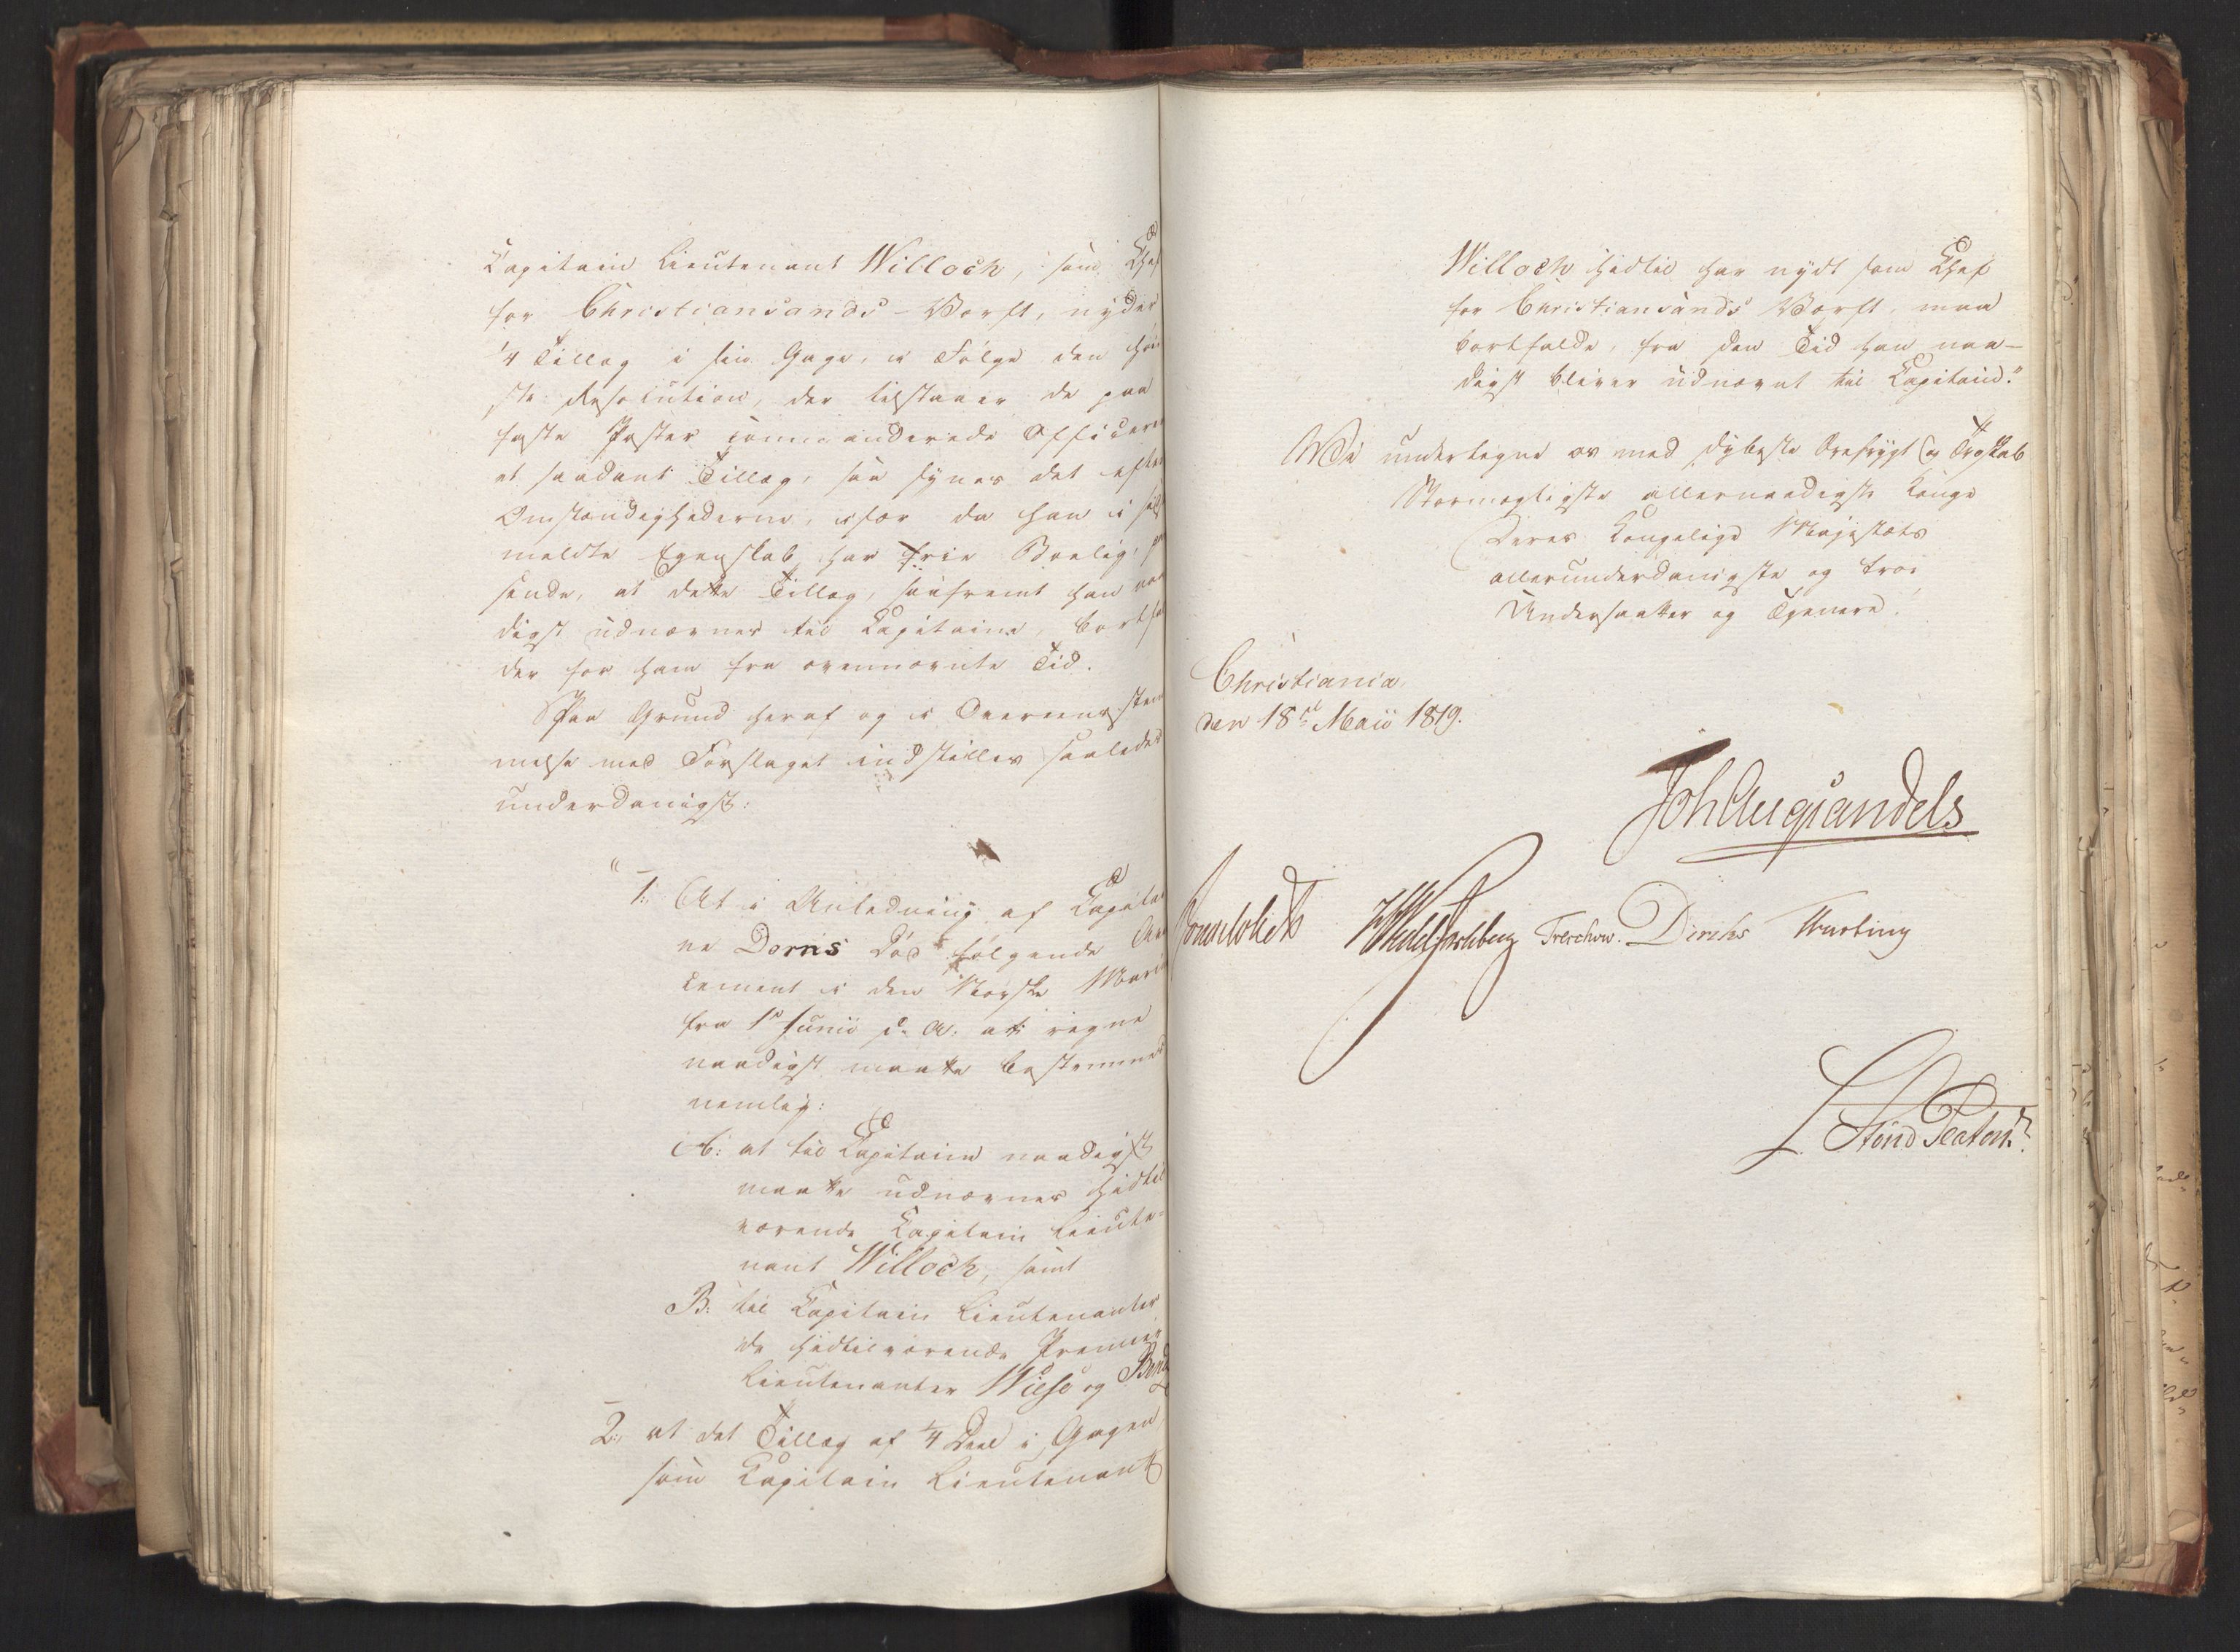 Capitain Lieutenant Willoch, som Chef
for Christiansands-Værft, nyder
1/4 Tillæg i sin Gage, i Følge den høi-
ste Resolution, der tilstaaer de paa
faste Poster commanderede Officerer
et saadant Tillæg, saa synes det efter
Omstændighederne, især da han i sidst
meldte Egenskab har frie Boelig, pas-
sende, at dette Tillæg, saafremt han naa
digst udnævnes til Capitaine, bortfal
der for ham fra ovennævnte Tid.
Paa Grund heraf og i Overeensstem
melse med Forslaget indstilles saaledes
underdanigst:
"1., At i Anledning af Capitai
ne Dorns Død følgende Avan
cement i den Norske Marine
fra 1ste Junii d. A. at regne
naadigst maatte bestemmes
nemlig:
A: at til Capitaine naadigst
maatte udnævnes hidtil
værende Capitain Lieute-
nant Willoch, samt
B: til Capitain Lieutenanter
de hidtilværende Premier
Lieutenanter Wiese og
2., at det Tillæg af 1/4 Deel i Gagen,
som Capitain Lieutenant
Willoch hidtil har nydt som Chef
for Christiansands Værft, maa
bortfalde, fra den Tid han naa-
digst bliver udnævnt til Capitain."
Vi undertegne os med dybeste Ærefrygt og Troskab
Stormægtigste allernaadigste Konge
Deres Kongelige Majestæts
allerunderdanigste og troe
Undersaatter og Tjenere.
Christiania
den 18de Maii 1819.
Joh Aug Sandels
Sommerhielm Wedel Jarlsberg Treschow. Diriks Krebs Motzfeldt